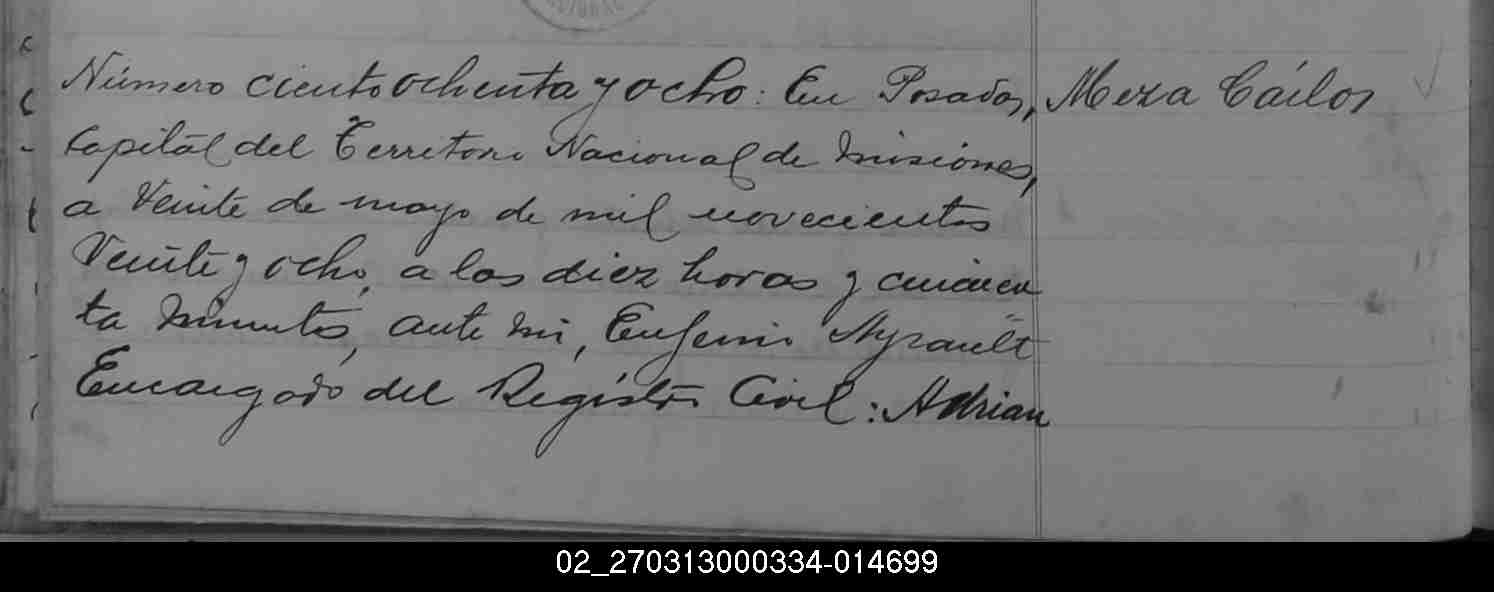 Número ciento ochenta y ocho: En Posadas,
Meza Cárlos
Capital del Territorio Nacional de Misiones,
a Veinte de mayo de mil novecientos
Veinte y ocho, a las diez horas y cuaren
ta minutos, ante mi, Eugenio Ayrault
Encargado del Registro Civil: Adrian
02_270313000334-014699